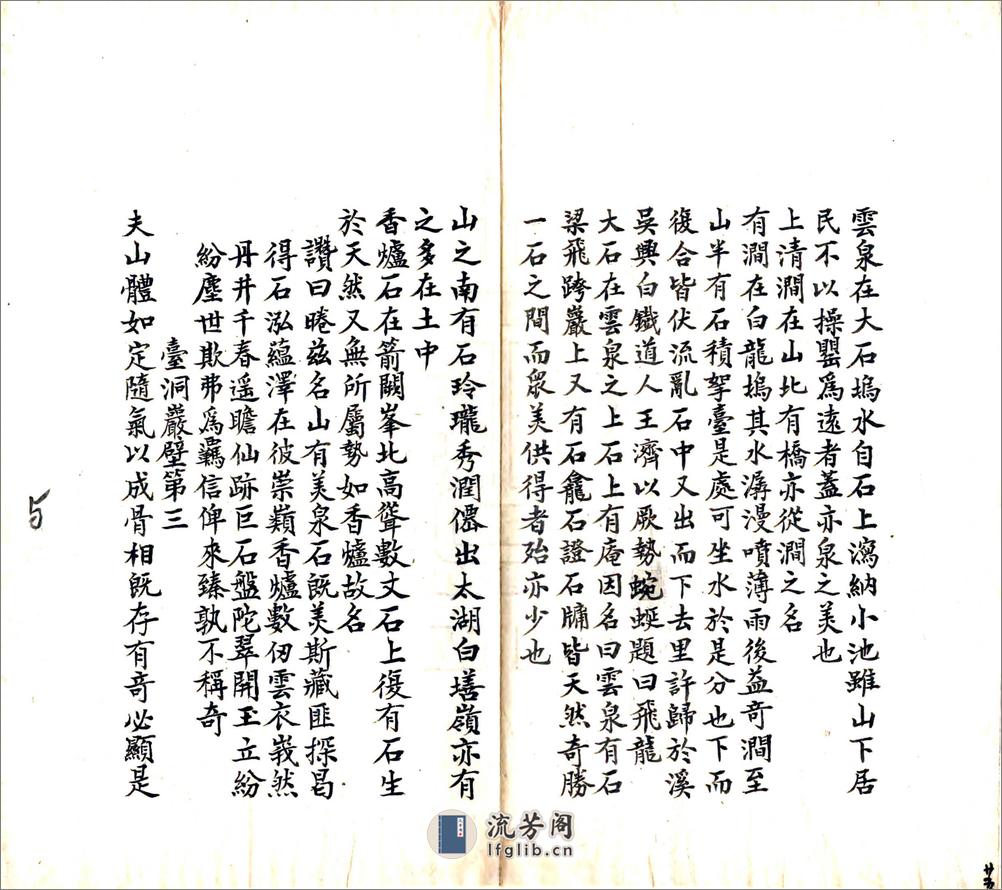 雲泉在大石塢水自石上瀉納小池雖山下居
民不以操罌爲遠者蓋亦泉之美也
上清澗在山北有橋亦從澗之名
有澗在白龍塢其水潺漫噴薄雨後益奇澗至
山半有石積拏臺是處可坐水於是分也下而
復合皆伏流亂石中又出而下去里許歸於溪
吳興白鐵道人王濟以厥勢蜿蜒題曰飛龍
大石在雲泉之上石上有庵因名曰雲泉有石
梁飛跨巖上又有石龕石證石牗皆天然奇勝
一石之間而衆美供得者殆亦少也
山之南有石玲瓏秀潤僊出太湖白墡嶺亦有
之多在土中
香爐石在箭闕峯北高聳數丈石上復有石生
於天然又無所屬勢如香爐故名
讚曰睠兹名山有美泉石旣美斯藏匪探曷
得石泓蘊澤在彼崇巓香爐數仞雲衣峩然
丹井千春遥瞻仙跡巨石盤陀翠開玉立紛
紛塵世欺弗爲羈信俾來臻孰不稱奇
臺洞巖壁第三
夫山體如定隨氣以成骨相旣存有奇必顯是
5
流芳阁
lfglib.cn